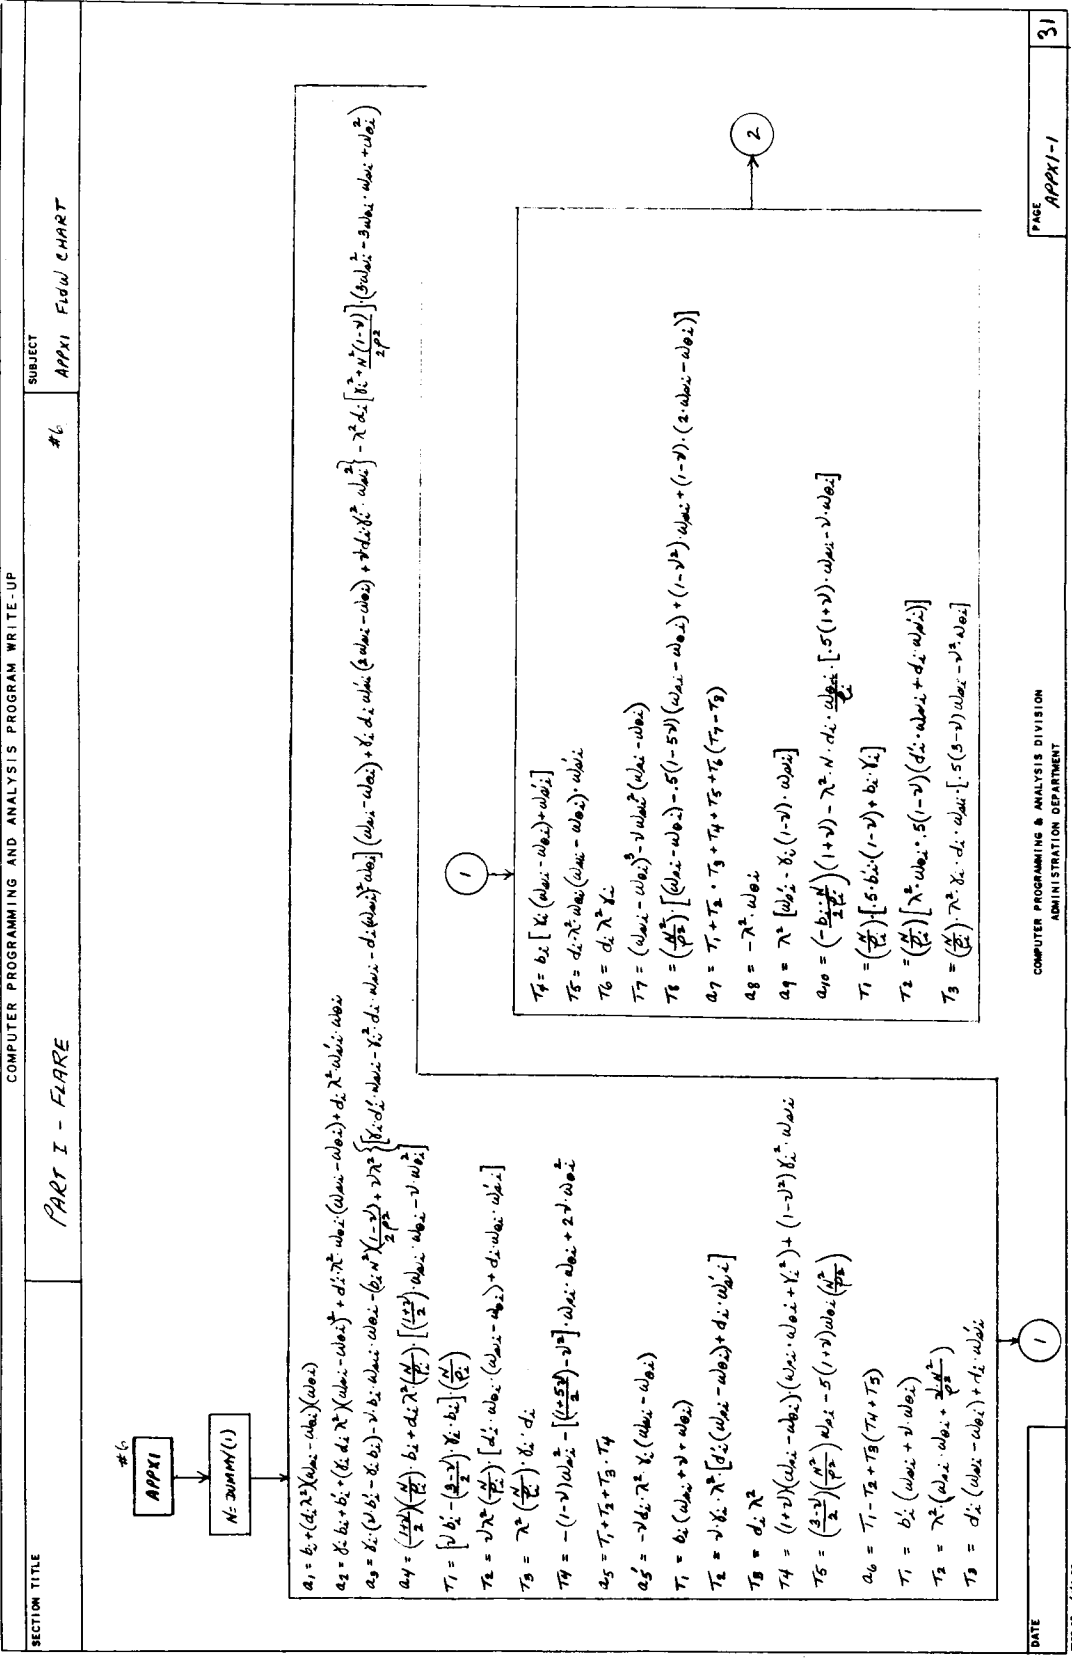 COMPUTER PROGRAMMING AND ANALYSIS PROGRAM WRITE-UP
SECTION TITLE
PART I - FLARE
#6
SUBJECT
APPX1 FLOW CHART
#6
APPX1
N = DUMMY(1)
a₁ = bᵢ + (dᵢλ²)(ωsᵢ - ωθᵢ)(ωθᵢ)
a₂ = γᵢbᵢ + bᵢ' + (γᵢdᵢλ²)(ωsᵢ - ωθᵢ)² + dᵢ'·λ²·ωθᵢ·(ωsᵢ - ωθᵢ) + dᵢλ²·ωsᵢ'·ωθᵢ
a₃ = γᵢ·(νbᵢ' - γᵢbᵢ) - ν·bᵢ·ωsᵢ·ωθᵢ - (bᵢN²)(1-ν)/2ρ² + νλ²{[γᵢ·dᵢ'·ωsᵢ - γᵢ²·dᵢ·ωsᵢ - dᵢ(ωsᵢ)²·ωθᵢ](ωsᵢ - ωθᵢ) + γᵢdᵢωsᵢ'(2ωsᵢ - ωθᵢ) + νdᵢγᵢ²·ωsᵢ²} - λ²dᵢ[γᵢ² + N²(1-ν)/2ρ²]·(3ωsᵢ² - 3ωθᵢ·ωsᵢ + ωθᵢ²)
a₄ = ((1+ν)/2)(N/ρᵢ)·bᵢ + dᵢλ²·(N/ρᵢ)·[((1+ν)/2)·ωsᵢ·ωθᵢ - ν·ωθᵢ²]
T₁ = [νbᵢ' - ((3-ν)/2)·γᵢ·bᵢ]·(N/ρᵢ)
T₂ = νλ²(N/ρᵢ)·[dᵢ'·ωθᵢ·(ωsᵢ - ωθᵢ) + dᵢ·ωθᵢ·ωsᵢ']
T₃ = λ²(N/ρᵢ)·γᵢ·dᵢ
T₄ = -(1-ν)ωsᵢ² - [((1+5ν)/2) - ν²]·ωsᵢ·ωθᵢ + 2ν·ωθᵢ²
a₅ = T₁ + T₂ + T₃·T₄
a₅' = -νdᵢ·λ²·γᵢ(ωsᵢ - ωθᵢ)
T₁ = bᵢ(ωsᵢ + ν + ωθᵢ)
T₂ = ν·γᵢ·λ²·[dᵢ'(ωsᵢ - ωθᵢ) + dᵢ·ωsᵢ']
T₃ = dᵢλ²
T₄ = (1+ν)(ωsᵢ - ωθᵢ)·(ωsᵢ·ωθᵢ + γᵢ²) + (1-ν²)γᵢ²·ωsᵢ
T₅ = ((3-ν)/2)(N²/ρ²)ωsᵢ - .5(1+ν)ωθᵢ(N²/ρ²)
a₆ = T₁ - T₂ + T₃(T₄ + T₅)
T₁ = bᵢ'(ωsᵢ + ν·ωθᵢ)
T₂ = λ²(ωsᵢ·ωθᵢ + ν·N²/ρ²)
T₃ = dᵢ'(ωsᵢ - ωθᵢ) + dᵢ·ωsᵢ'
1
1
T₄ = bᵢ[γᵢ(ωsᵢ - ωθᵢ) + ωsᵢ']
T₅ = dᵢ·λ²·ωθᵢ(ωsᵢ - ωθᵢ)·ωsᵢ'
T₆ = dᵢλ²γᵢ
T₇ = (ωsᵢ - ωθᵢ)³ - νωsᵢ²(ωsᵢ - ωθᵢ)
T₈ = (N²/ρ²)·[(ωsᵢ - ωθᵢ) - .5(1-5ν)(ωsᵢ - ωθᵢ) + (1-ν²)·ωsᵢ + (1-ν)·(2·ωsᵢ - ωθᵢ)]
a₇ = T₁ + T₂·T₃ + T₄ + T₅ + T₆(T₇ - T₈)
a₈ = -λ²·ωθᵢ
a₉ = λ²[ωθᵢ' - γᵢ(1-ν)·ωsᵢ]
a₁₀ = (-bᵢ·N/2ρᵢ)(1+ν) - λ²·N·dᵢ·ωθᵢ/ρᵢ·[.5(1+ν)·ωsᵢ - ν·ωθᵢ]
T₁ = (N/ρᵢ)·[.5·bᵢ'·(1-ν) + bᵢ·γᵢ]
T₂ = (N/ρᵢ)[λ²·ωθᵢ·.5(1-ν)(dᵢ'·ωsᵢ + dᵢ·ωsᵢ')]
T₃ = (N/ρᵢ)·λ²·γᵢ·dᵢ·ωsᵢ·[.5(3-ν)ωsᵢ - ν²·ωθᵢ]
2
DATE
COMPUTER PROGRAMMING & ANALYSIS DIVISION
ADMINISTRATION DEPARTMENT
PAGE
APPX1-1
31